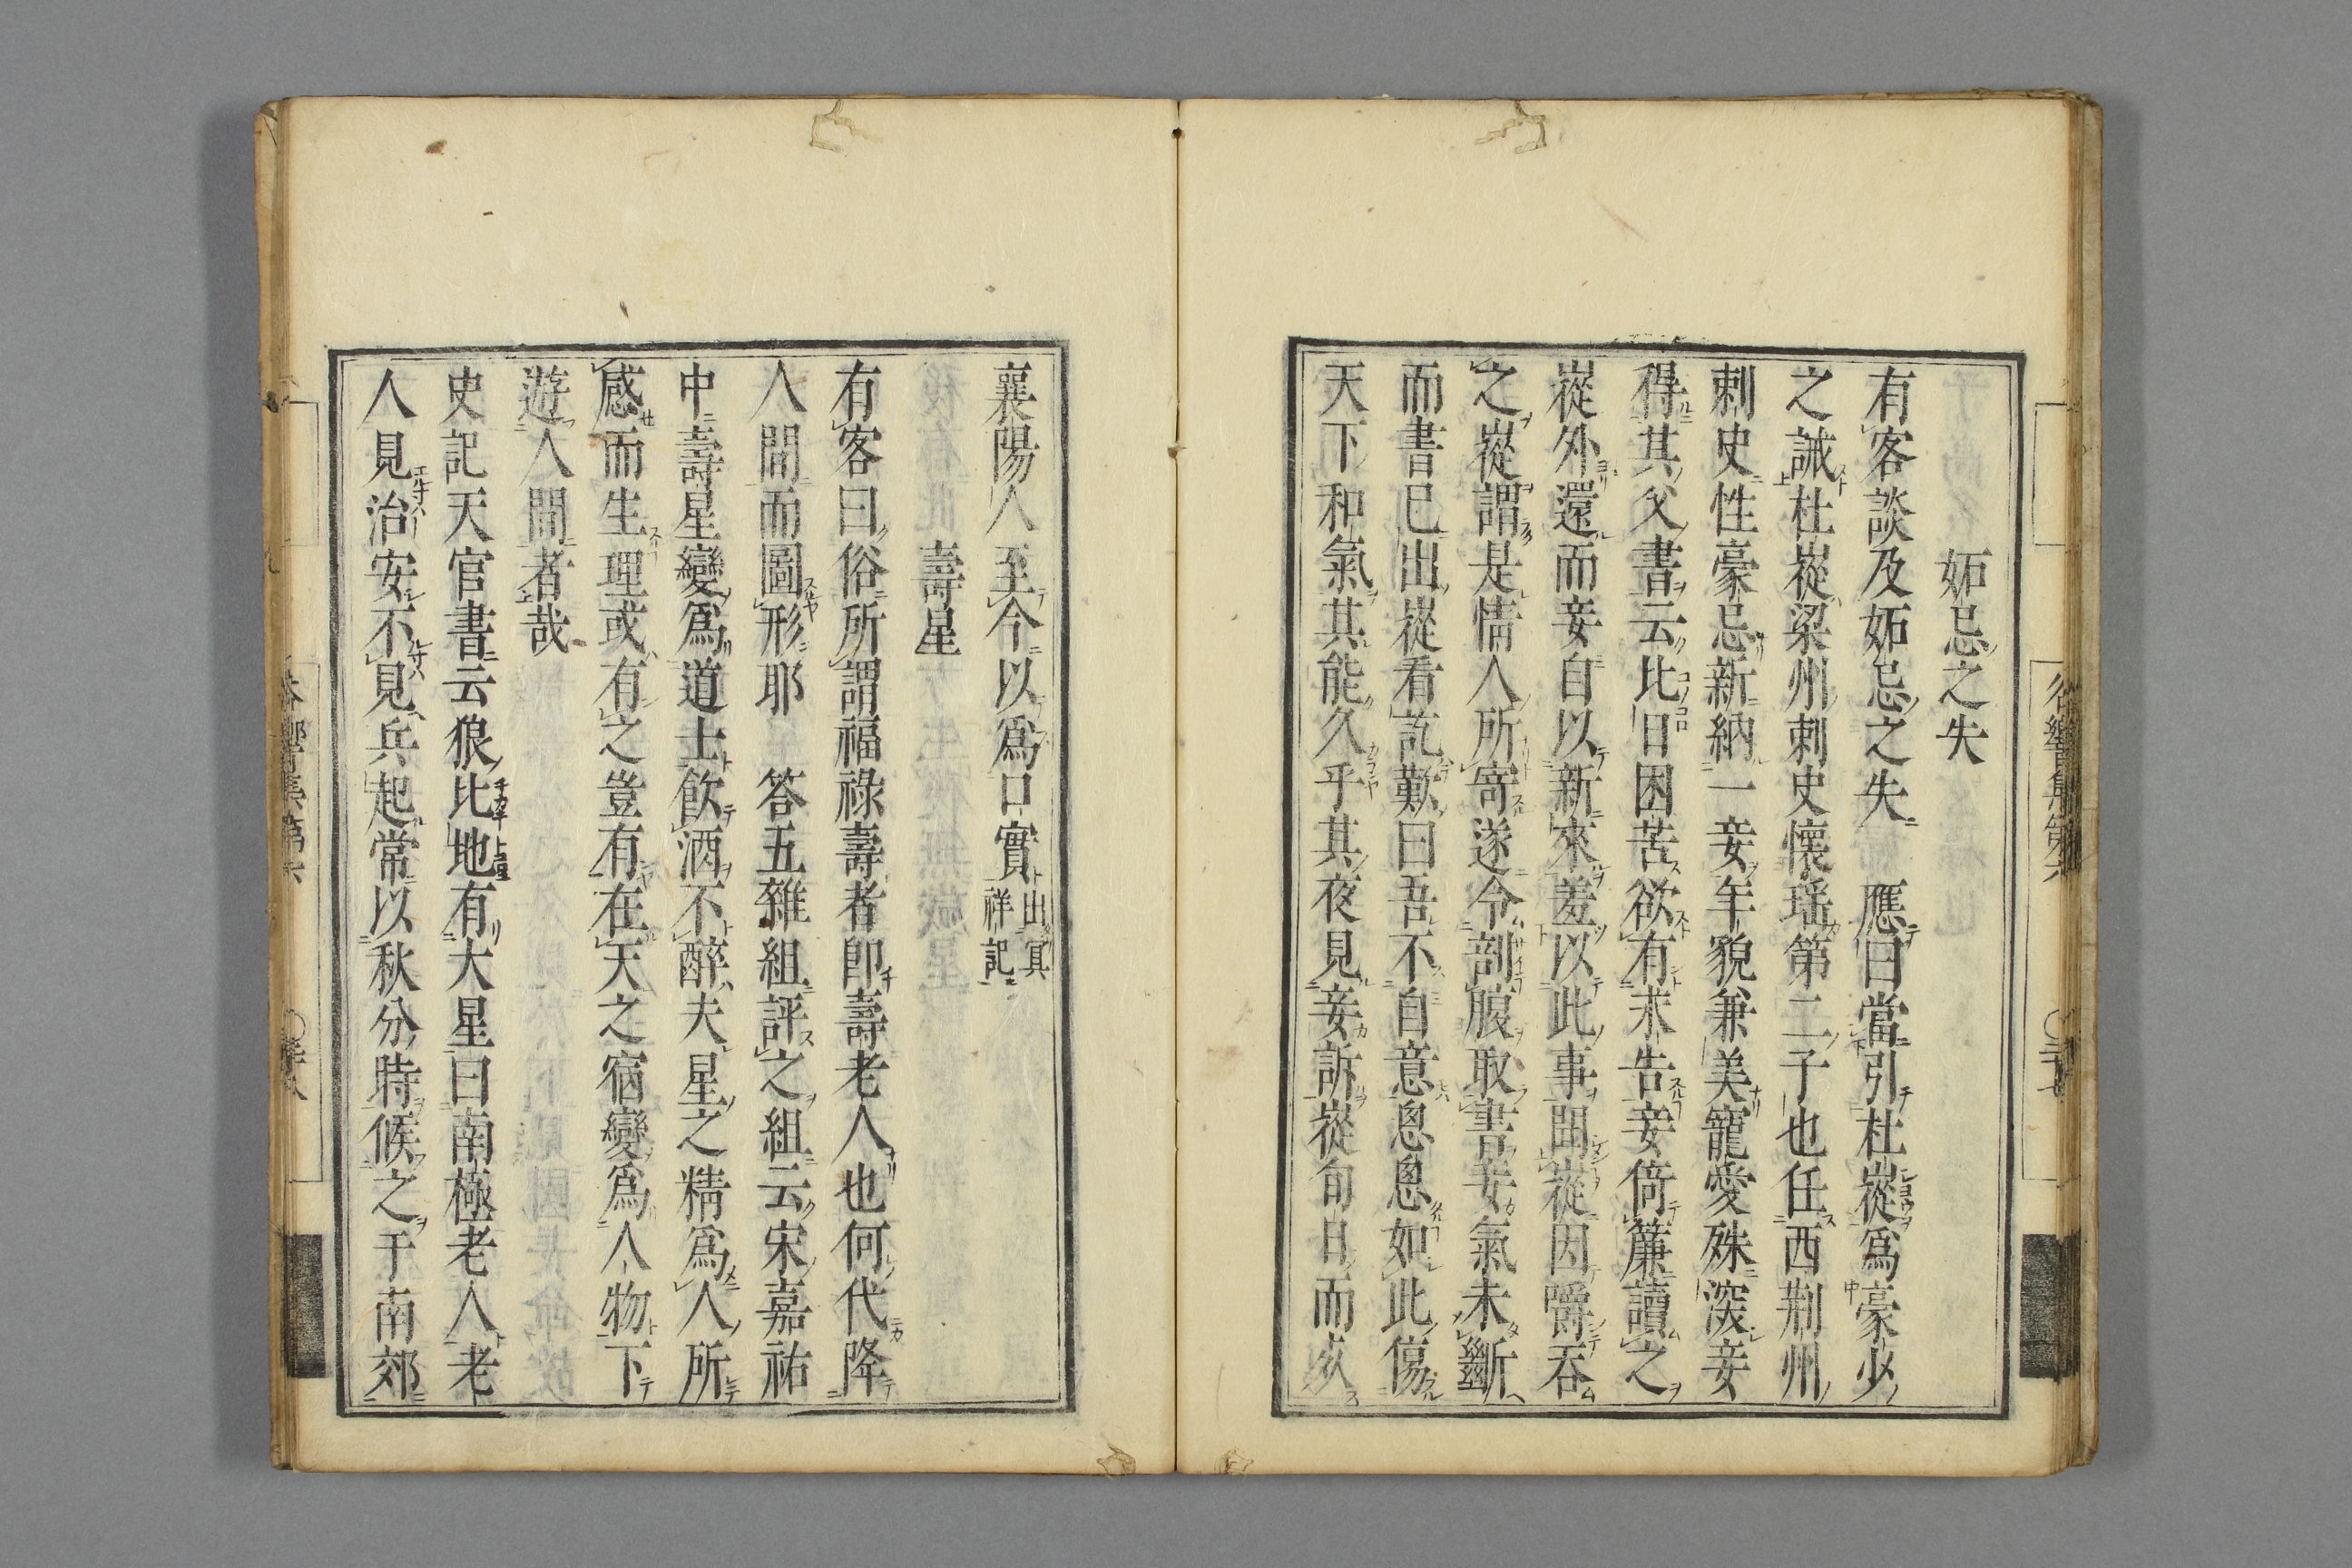 妬忌之失
有客談及妬忌之失　應曰當引杜嶷爲豪少
之誡杜嶷梁州刺史懷瑶第二子也任西荆州
刺史性豪忌新納一妾年貌兼美寵愛殊深妾
得其父書云比日困苦欲有求告妾倚簾讀之
嶷外還而妾自以新來羞以此事聞嶷因嚼吞
之嶷謂是情人所寄遂令剖腹取書妾氣未斷
而書已出嶷看訖歎曰吾不自意怱怱如此傷
天下和氣其能久乎其夜見妾訴嶷旬日而亥
襄陽人至今以爲口實出冥祥記
壽星
有客曰俗所謂福祿壽者卽壽老人也何代降
人間而圖形耶　答五雜組評之組云宋嘉祐
中壽星變爲道士飲酒不醉夫星之精爲人所
感而生理或有之豈有在天之宿變爲人物下
遊人間者哉
史記天官書云狼比地有大星曰南極老人老
人見治安不見兵起常以秋分時候之于南郊